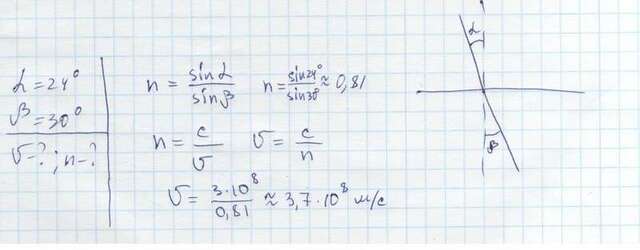 α = 24°
β = 30°
v - ? ; n - ?
n = sin α / sin β n = sin 24° / sin 30° ≈ 0,81
n = c / v v = c / n
v = 3·10⁸ / 0,81 ≈ 3,7·10⁸ м/с
α
β